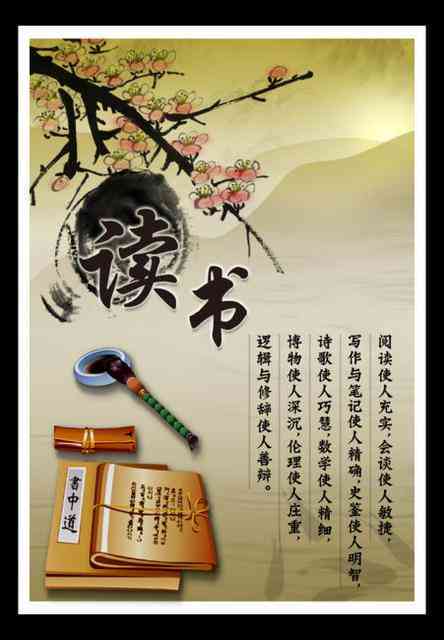 读书
阅读使人充实,会谈使人敏捷,
写作与笔记使人精确,史鉴使人明智,
诗歌使人巧慧,数学使人精细,
博物使人深沉,伦理使人庄重,
逻辑与修辞使人善辩。
书中道